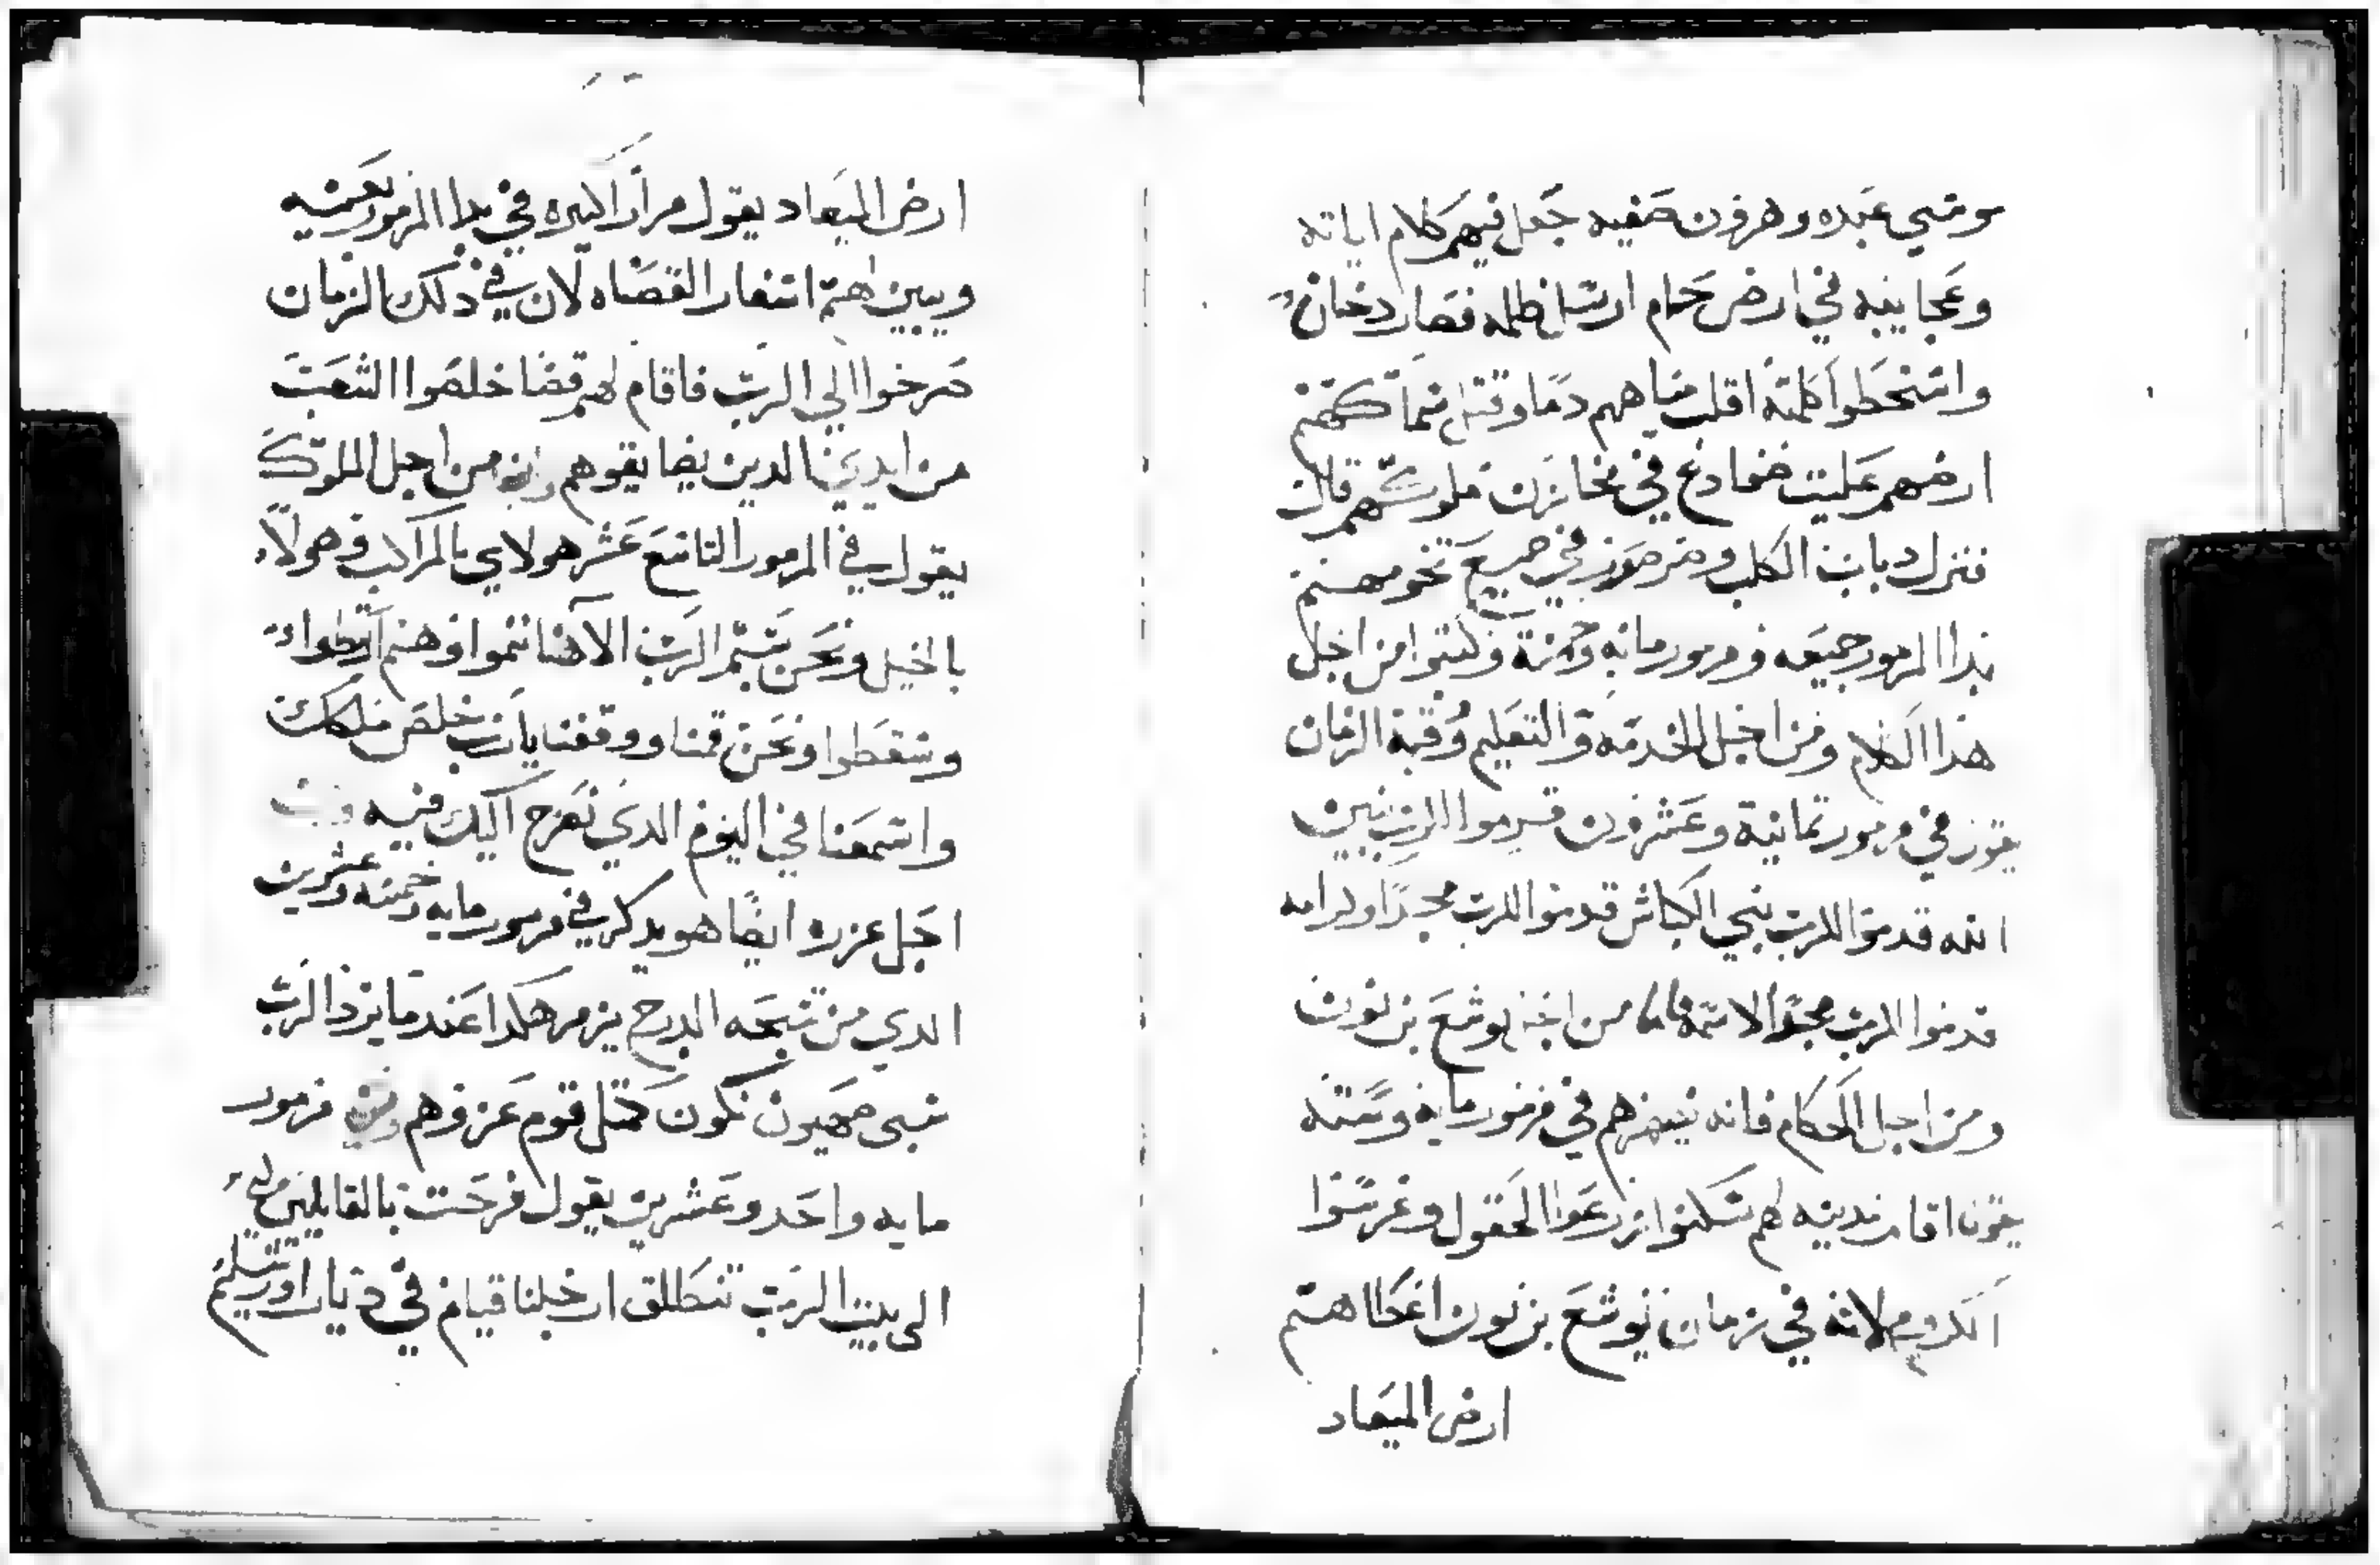 موسي عبده وهرون صفيه جعل فيهم كلام اياته
وعجايبه في ارض حام ارسل ظلمه فصار دخان
واسخطوا كلمته اقلب مياههم دما وقتل سماكهم
ارضهم عليت ضفادع في مخازن ملوكهم قال
فنزل دباب الكلب وصرصور في جميع تخومهم
بدا المزمور جميعه ومزمور مايه وخمسة وكتبوا من اجل
هذا الكلام ومن اجل الخدمه والتعليم وقبة الزمان
يقول في مزمور تمانية وعشرون قدموا للرب يا بنين
الله قدموا للرب بني الكباش قدموا للرب مجدا وكرامه
قدموا للرب مجدا لاسمه من اجل يوشع بن نون
ومن اجل الحكام فانه في مزمور مايه وسته
يقول اقام مدينه لهم سكنوا زرعوا الحقول وغرسوا
الكروم لانه في زمان يوشع بن نون اعطاهم
ارض الميعاد
ارض الميعاد يقول مرارا كثيره في بدا المزمور بعينه
ويبين لهم اسفار القضاه لان في دلك الزمان
صرخوا الي الرب فاقام لهم قضا خلصوا الشعب
من ايدي الدين يضايقوهم وايضا من اجل الملوك
يقول في المزمور التاسع عشر هولاي بالمراكب وهولاء
بالخيل ونحن بسم الرب الاهنا ننموا وهم
وسقطوا ونحن قمنا ووقفنا يارب خلص ملكك
واسمعنا في اليوم الدي نصرخ اليك فيه ومن
اجل عزره ايضا هو يدكر في مزمور مايه وخمسه وعشرين
الدي من تسبحه الدرج يزمر هكدا عندما يرد الرب
سبي صهيون نكون كمثل قوم عزوهم وفي مزمور
مايه واحد وعشرين يقول فرحت بالقايلين لي
الي بيت الرب ننطلق ارجلنا قيام في ديار اورشليم